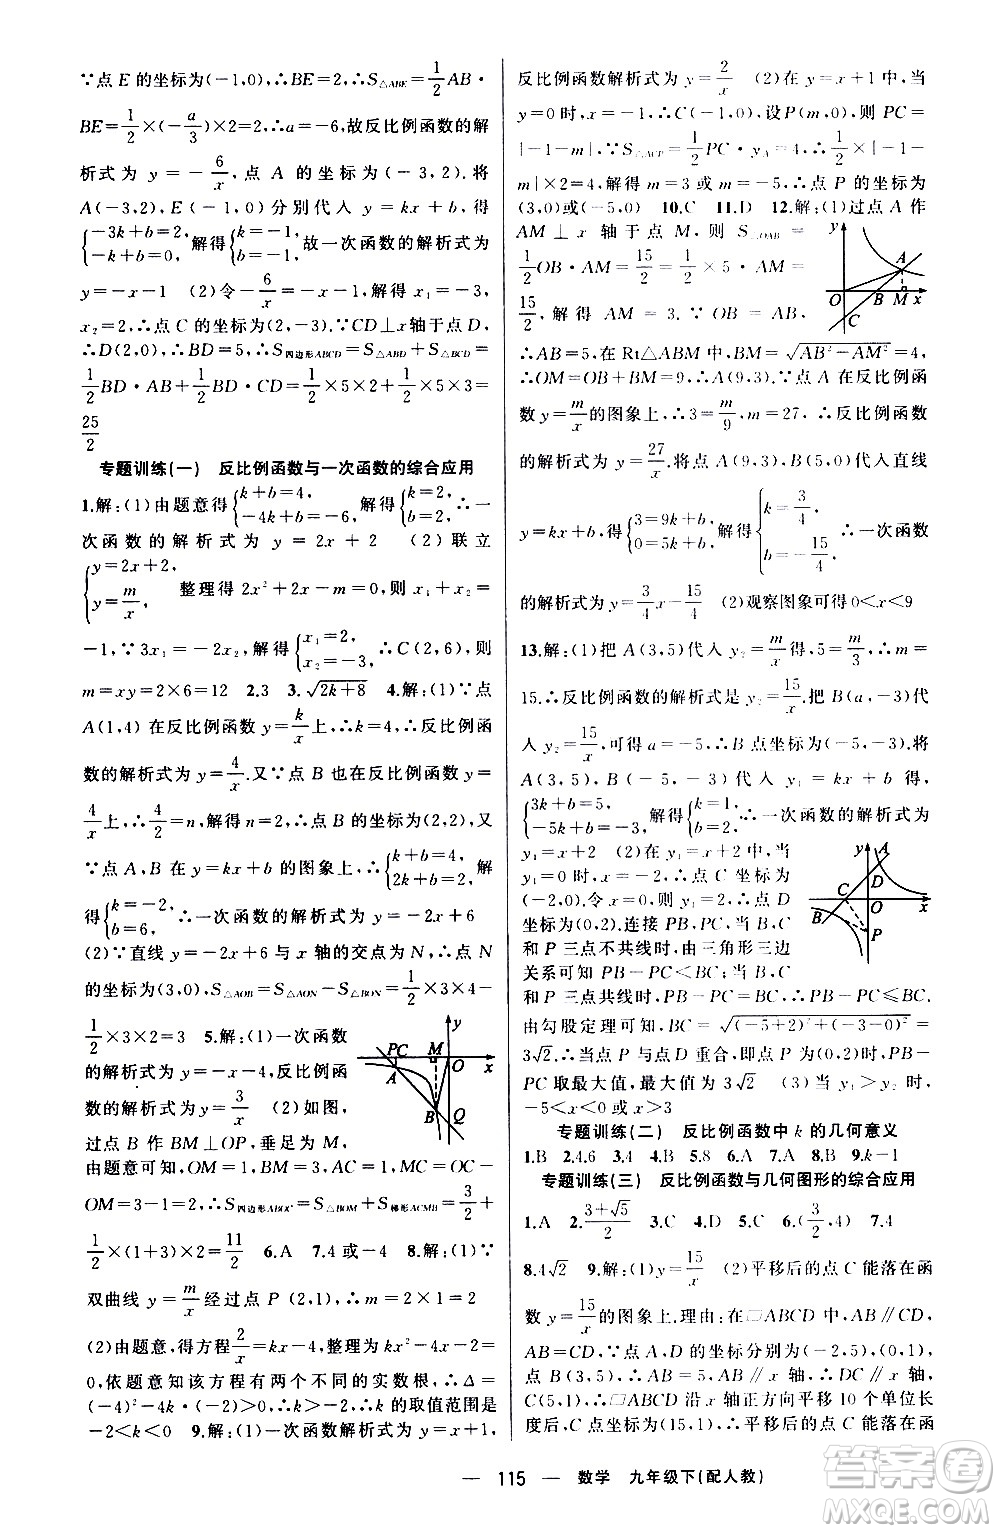 ∵点 E 的坐标为(-1,0),∴BE=2,∴S△ABE=1/2 AB·
BE=1/2×(-a/3)×2=2,∴a=-6,故反比例函数的解
析式为 y=-6/x,点 A 的坐标为(-3,2).将
A(-3,2),E(-1,0)分别代入 y=kx+b,得
{-3k+b=2,-k+b=0,解得{k=-1,b=-1,故一次函数的解析式为
y=-x-1 (2)令-6/x=-x-1,解得 x₁=-3,
x₂=2,∴点 C 的坐标为(2,-3).∵CD⊥x轴于点 D,
∴D(2,0),∴BD=5,∴S四边形ABCD=S△ABD+S△BCD=
1/2 BD·AB+1/2 BD·CD=1/2×5×2+1/2×5×3=
25/2
专题训练(一) 反比例函数与一次函数的综合应用
1.解:(1)由题意得{k+b=4,-4k+b=-6,解得{k=2,b=2,∴一
次函数的解析式为 y=2x+2 (2)联立
{y=2x+2,y=m/x,整理得 2x²+2x-m=0,则 x₁+x₂=
-1,∵3x₁=-2x₂,解得{x₁=2,x₂=-3,∴C(2,6),则
m=xy=2×6=12 2.3 3.√(2k+8) 4.解:(1)∵点
A(1,4)在反比例函数 y=k/x 上,∴k=4,∴反比例函
数的解析式为 y=4/x.又∵点 B 也在反比例函数 y=
4/x上,∴4/2=n,解得 n=2,∴点 B 的坐标为(2,2),又
∵点 A,B 在 y=kx+b 的图象上,∴{k+b=4,2k+b=2,解
得{k=-2,b=6,∴一次函数的解析式为 y=-2x+6
(2)∵直线 y=-2x+6 与 x 轴的交点为 N,∴点 N
的坐标为(3,0),S△AOB=S△AON-S△BON=1/2×3×4-
1/2×3×2=3 5.解:(1)一次函数
的解析式为 y=-x-4,反比例函
数的解析式为 y=3/x (2)如图,
过点 B 作 BM⊥OP,垂足为 M,
由题意可知,OM=1,BM=3,AC=1,MC=OC-
OM=3-1=2,∴S四边形ABOC=S△BOM+S梯形ACMB=3/2+
1/2×(1+3)×2=11/2 6.A 7.4 或-4 8.解:(1)∵
双曲线 y=m/x经过点 P(2,1),∴m=2×1=2
(2)由题意,得方程2/x=kx-4,整理为 kx²-4x-2=
0,依题意知该方程有两个不同的实数根,∴Δ=
(-4)²-4k·(-2)>0,∴k>-2,∴k 的取值范围是
-2<k<0 9.解:(1)一次函数解析式为 y=x+1,
y
PC
M
O
x
A
B
Q
反比例函数解析式为 y=2/x (2)在 y=x+1 中,当
y=0时,x=-1,∴C(-1,0),设P(m,0),则 PC=
|-1-m|,∵S△ACP=1/2 PC·yA=4,∴1/2×|-1-
m|×2=4,解得 m=3 或 m=-5,∴点 P 的坐标为
(3,0)或(-5,0) 10.C 11.D 12.解:(1)过点 A 作
AM⊥x 轴于点 M,则 S△OAB=
1/2 OB·AM=15/2=1/2×5·AM=
15/2,解得 AM=3.∵OB=AB,
∴AB=5,在 Rt△ABM 中,BM=√(AB²-AM²)=4,
∴OM=OB+BM=9,∴A(9,3).∵点 A 在反比例函
数 y=m/x的图象上,∴3=m/9,m=27,∴反比例函数
的解析式为 y=27/x.将点 A(9,3),B(5,0)代入直线
y=kx+b,得{3=9k+b,0=5k+b,解得{k=3/4,b=-15/4,∴一次函数
的解析式为 y=3/4x-15/4 (2)观察图象可得 0<x<9
y
A
O
B
M
x
C
13.解:(1)把 A(3,5)代入 y₂=m/x,得,5=m/3,∴m=
15,∴反比例函数的解析式是 y₂=15/x.把 B(a,-3)代
入 y₂=15/x,可得 a=-5,∴B 点坐标为(-5,-3).将
A(3,5),B(-5,-3)代入 y₁=kx+b 得,
{3k+b=5,-5k+b=-3,解得{k=1,b=2,∴一次函数的解析式为
y₁=x+2 (2)在 y₁=x+2 中,当
y₁=0时,x=-2,∴C 点坐标为
(-2,0),令 x=0,得 y₁=2,∴D 点
坐标为(0,2).连接 PB,PC,当 B,C
和 P 三点不共线时,由三角形三边
关系可知 PB-PC<BC;当 B,C
和 P 三点共线时,PB-PC=BC,∴PB-PC≤BC.
由勾股定理可知,BC=√((-5+2)²+(-3-0)²)=
3√2.∴当点 P 与点 D 重合,即点 P(0,2)时,PB-
PC 取最大值,最大值为 3√2 (3)当 y₁>y₂ 时,
-5<x<0 或 x>3
y
A
D
C
O
x
B
P
专题训练(二) 反比例函数中 k 的几何意义
1.B 2.4.6 3.4 4.B 5.B 6.A 7.A 8.B 9.k-1
专题训练(三) 反比例函数与几何图形的综合应用
1.A 2.(3+√5)/2 3.C 4.D 5.C 6.(3/2,4) 7.4
8.4√2 9.解:(1)y=15/x (2)平移后的点 C 能落在函
数 y=15/x的图象上.理由:在▱ABCD 中,AB∥CD,
AB=CD,∵点 A,D 的坐标分别为(-2,5),(0,1),
点 B(3,5),∴AB=5,AB∥x 轴,∴DC∥x 轴,∴点
C(5,1),∴▱ABCD 沿 x 轴正方向平移 10 个单位长
度后,C 点坐标为(15,1),∴平移后的点 C 能落在函
— 115 — 数学 九年级下(配人教)
答案圈
MXQE.COM